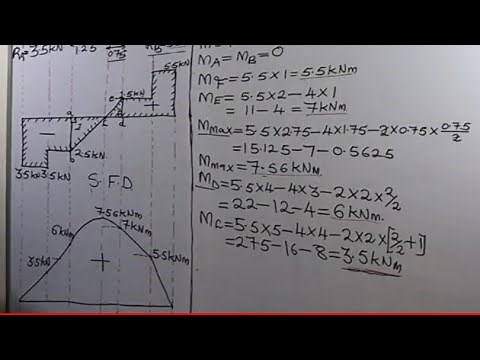 R_A=3.5kN 1.25 0.75 R_B=
M_A=M_B=0
5.5kN
1.5kN
3.5kN 3.5kN
2.5kN
S.F.D
7.56kNm
7kNm
6kNm
3.5kN
5.5kNm
M_F=5.5×1=5.5kNm
M_E=5.5×2-4×1
=11-4=7kNm
M_max=5.5×2.75-4×1.75-2×0.75×0.75/2
=15.125-7-0.5625
M_max=7.56kNm
M_D=5.5×4-4×3-2×2×2/2
=22-12-4=6kNm
M_C=5.5×5-4×4-2×2×[2/2+1]
=27.5-16-8=3.5kNm